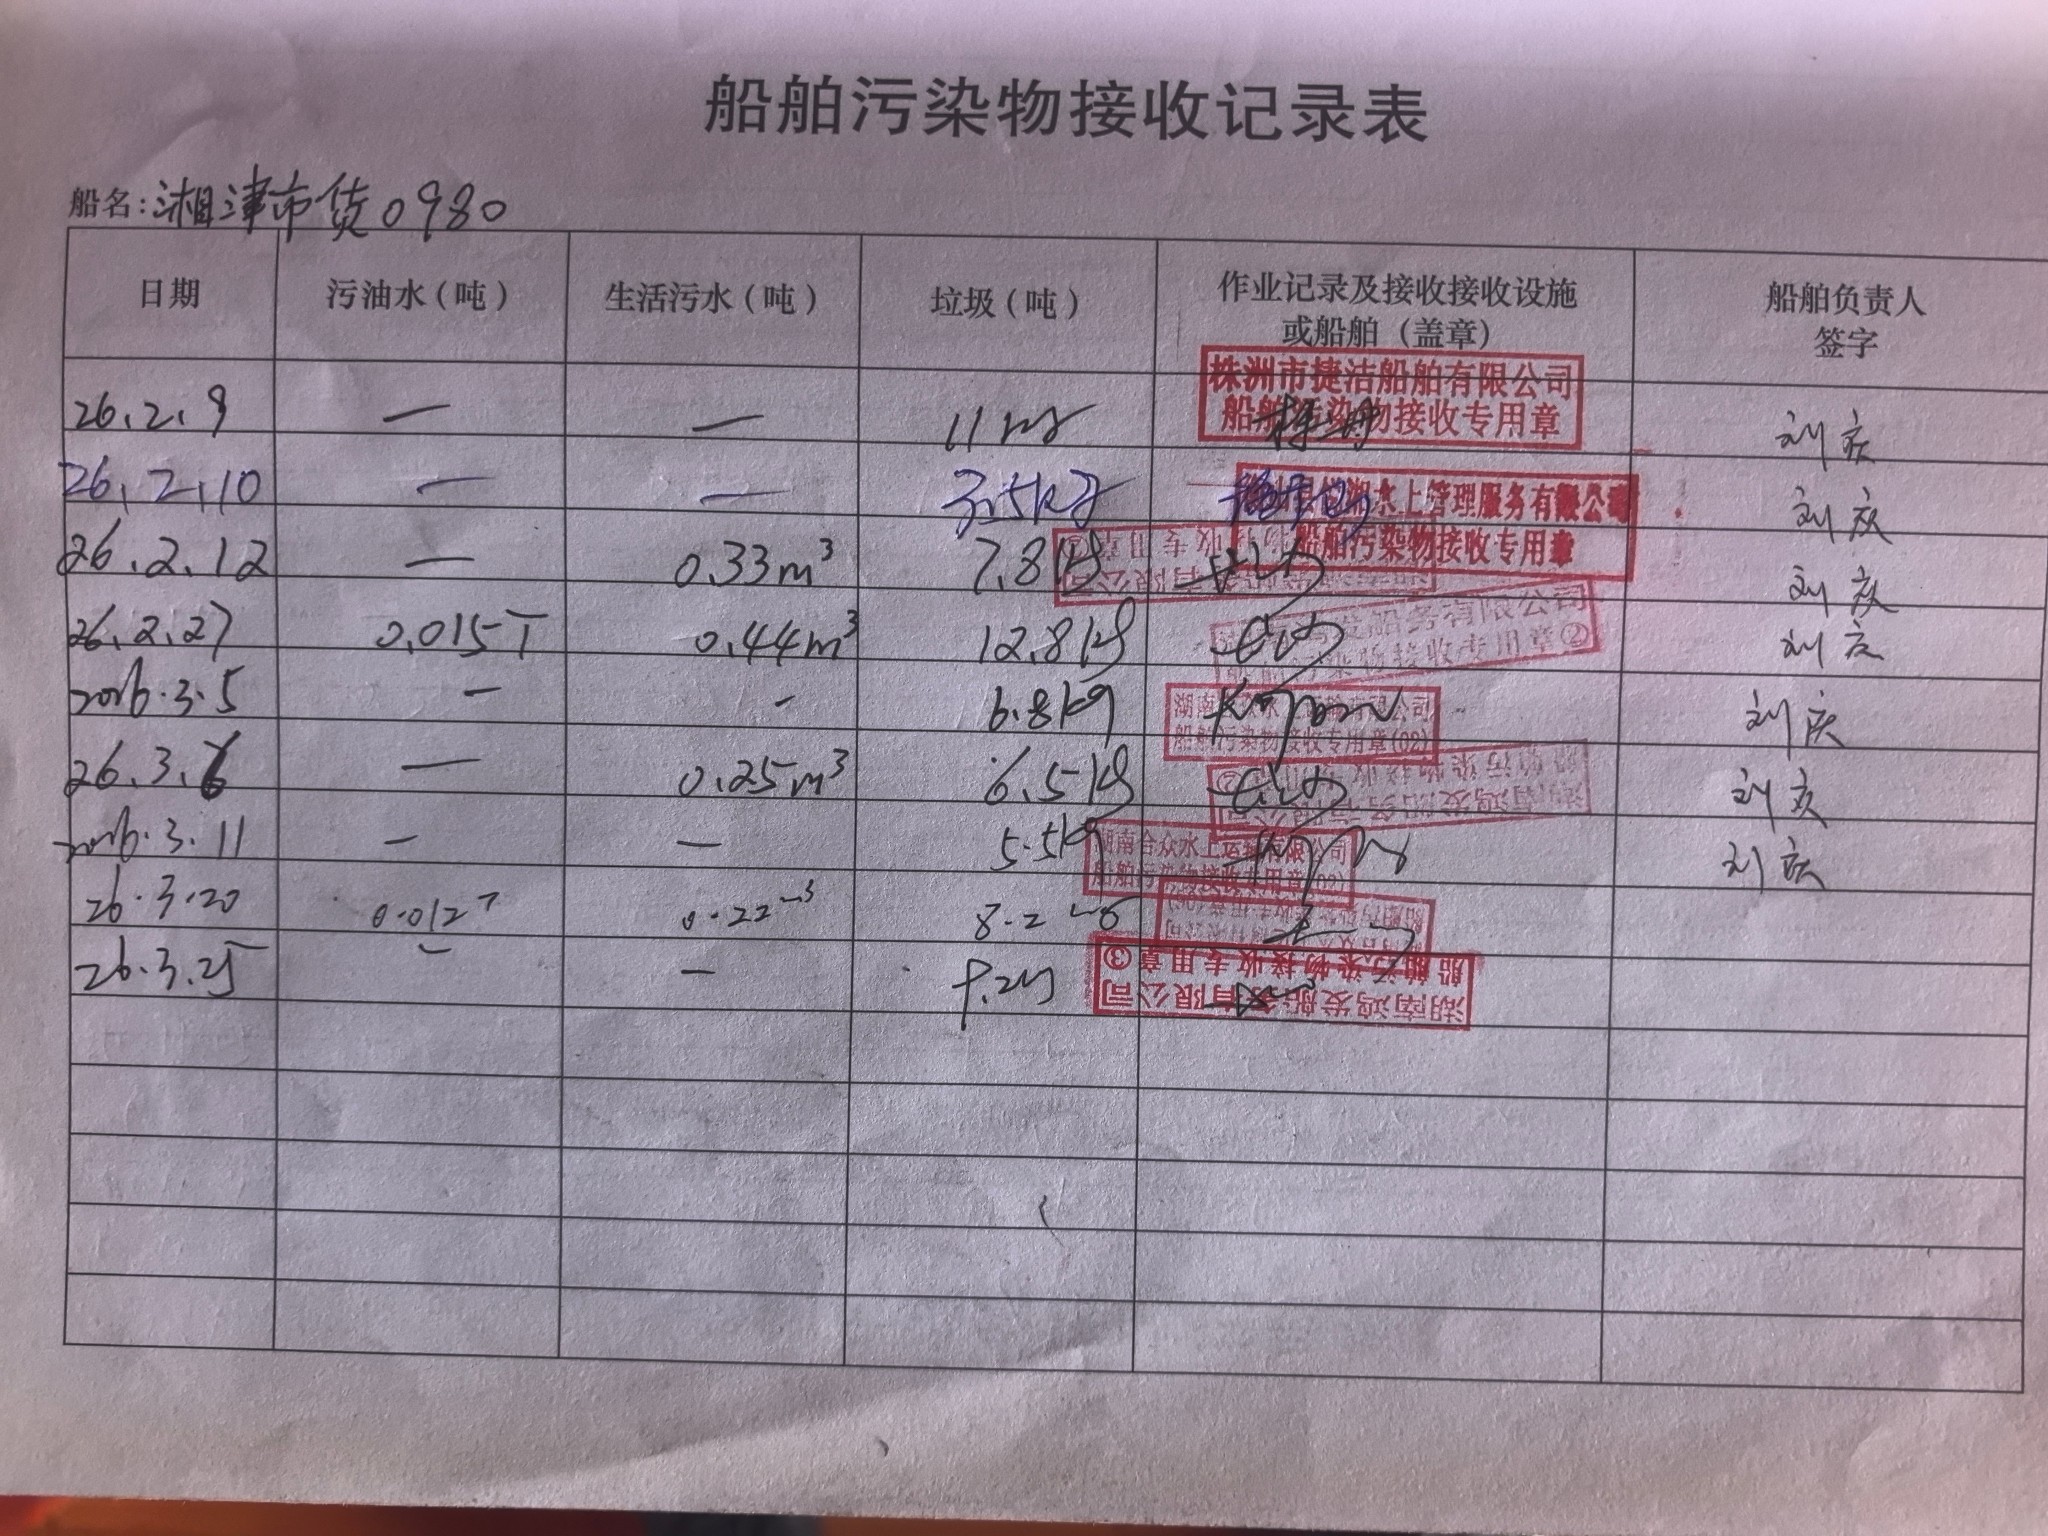 船舶污染物接收记录表
船名：湘津市货0980
日期 污油水（吨） 生活污水（吨） 垃圾（吨） 作业记录及接收接收设施或船舶（盖章） 船舶负责人签字
26.2.9 — — 11kg 株洲市捷洁船舶有限公司 船舶污染物接收专用章 刘庆
26.2.10 — — 3.5kg 水上管理服务有限公司 船舶污染物接收专用章 刘庆
26.2.12 — 0.33m³ 7.8kg 刘庆
26.2.27 0.015T 0.44m³ 12.8kg 船务有限公司 污染物接收专用章② 刘庆
2026.3.5 - - 6.8kg 湖南 公司 船舶污染物接收专用章(02) 刘庆
26.3.6 — 0.25m³ 6.5kg 湖南鸿发船务有限公司 刘庆
2026.3.11 — — 5.5kg 湖南合众水上运输有限公司 船舶污染物接收专用章 刘庆
26.3.20 0.012T 0.22m³ 8.2kg
26.3.25 — — 9.2kg 湖南鸿发船务有限公司 船舶污染物接收专用章③